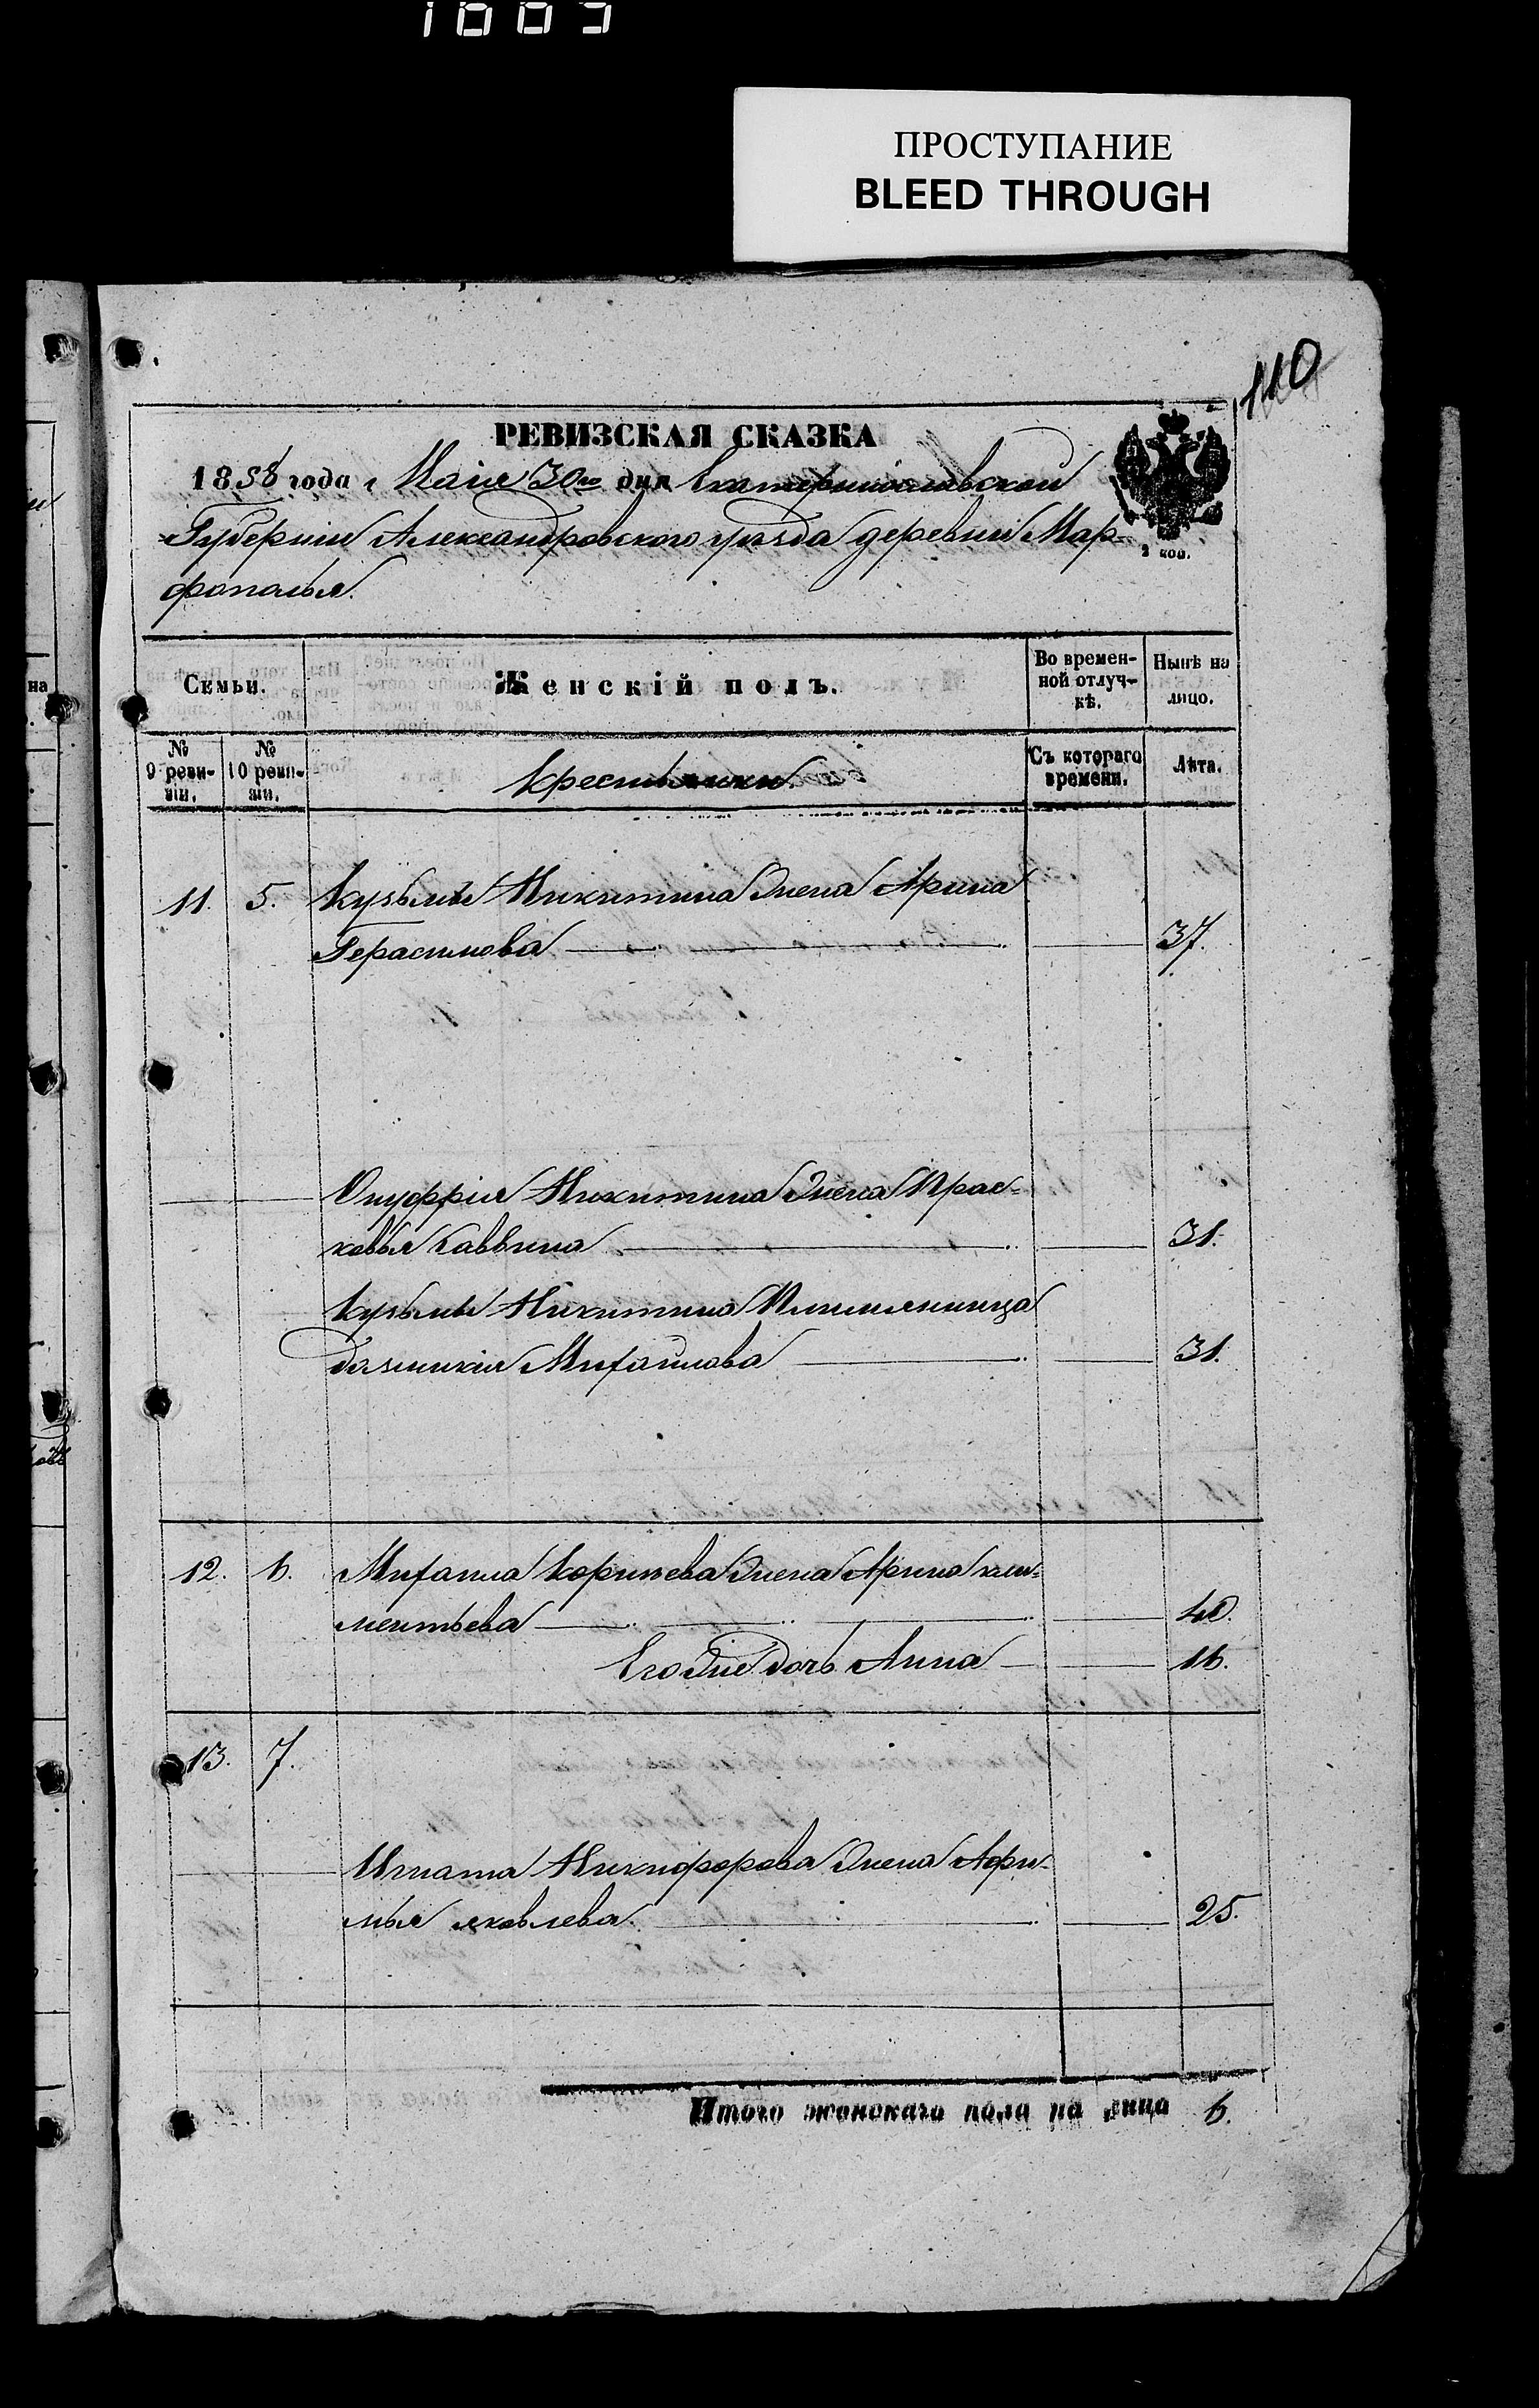 1003
ПРОСТУПАНИЕ
BLEED THROUGH
110
РЕВИЗСКАЯ СКАЗКА
1858 года Маія 30го дня Екатеринославской
Губерніи Александровского уѣзда деревни Мар-
фополья.
2 коп.
Семьи. Женскій полъ. Во времен-ной отлуч-кѣ. Нынѣ на лицо.
№ 9 реви-зіи. № 10 реви-зіи. Крестьянки. Съ котораго времени. Лѣта.
11. 5. Кузьмы Никитина Жена Арина
Герасимова 37.
Онуфрія Никитина Жена Прас-
ковья Саввина 31.
Кузьмы Никитина Племянница
Михайлова 31.
12. 6. Михаила Корнѣева Жена Арина кли-
ментьева 40.
Его же дочь Анна 16.
13. 7.
Игната Никифорова Жена Афи-
мья яковлева 25.
Итого женскаго пола на лицо 6.